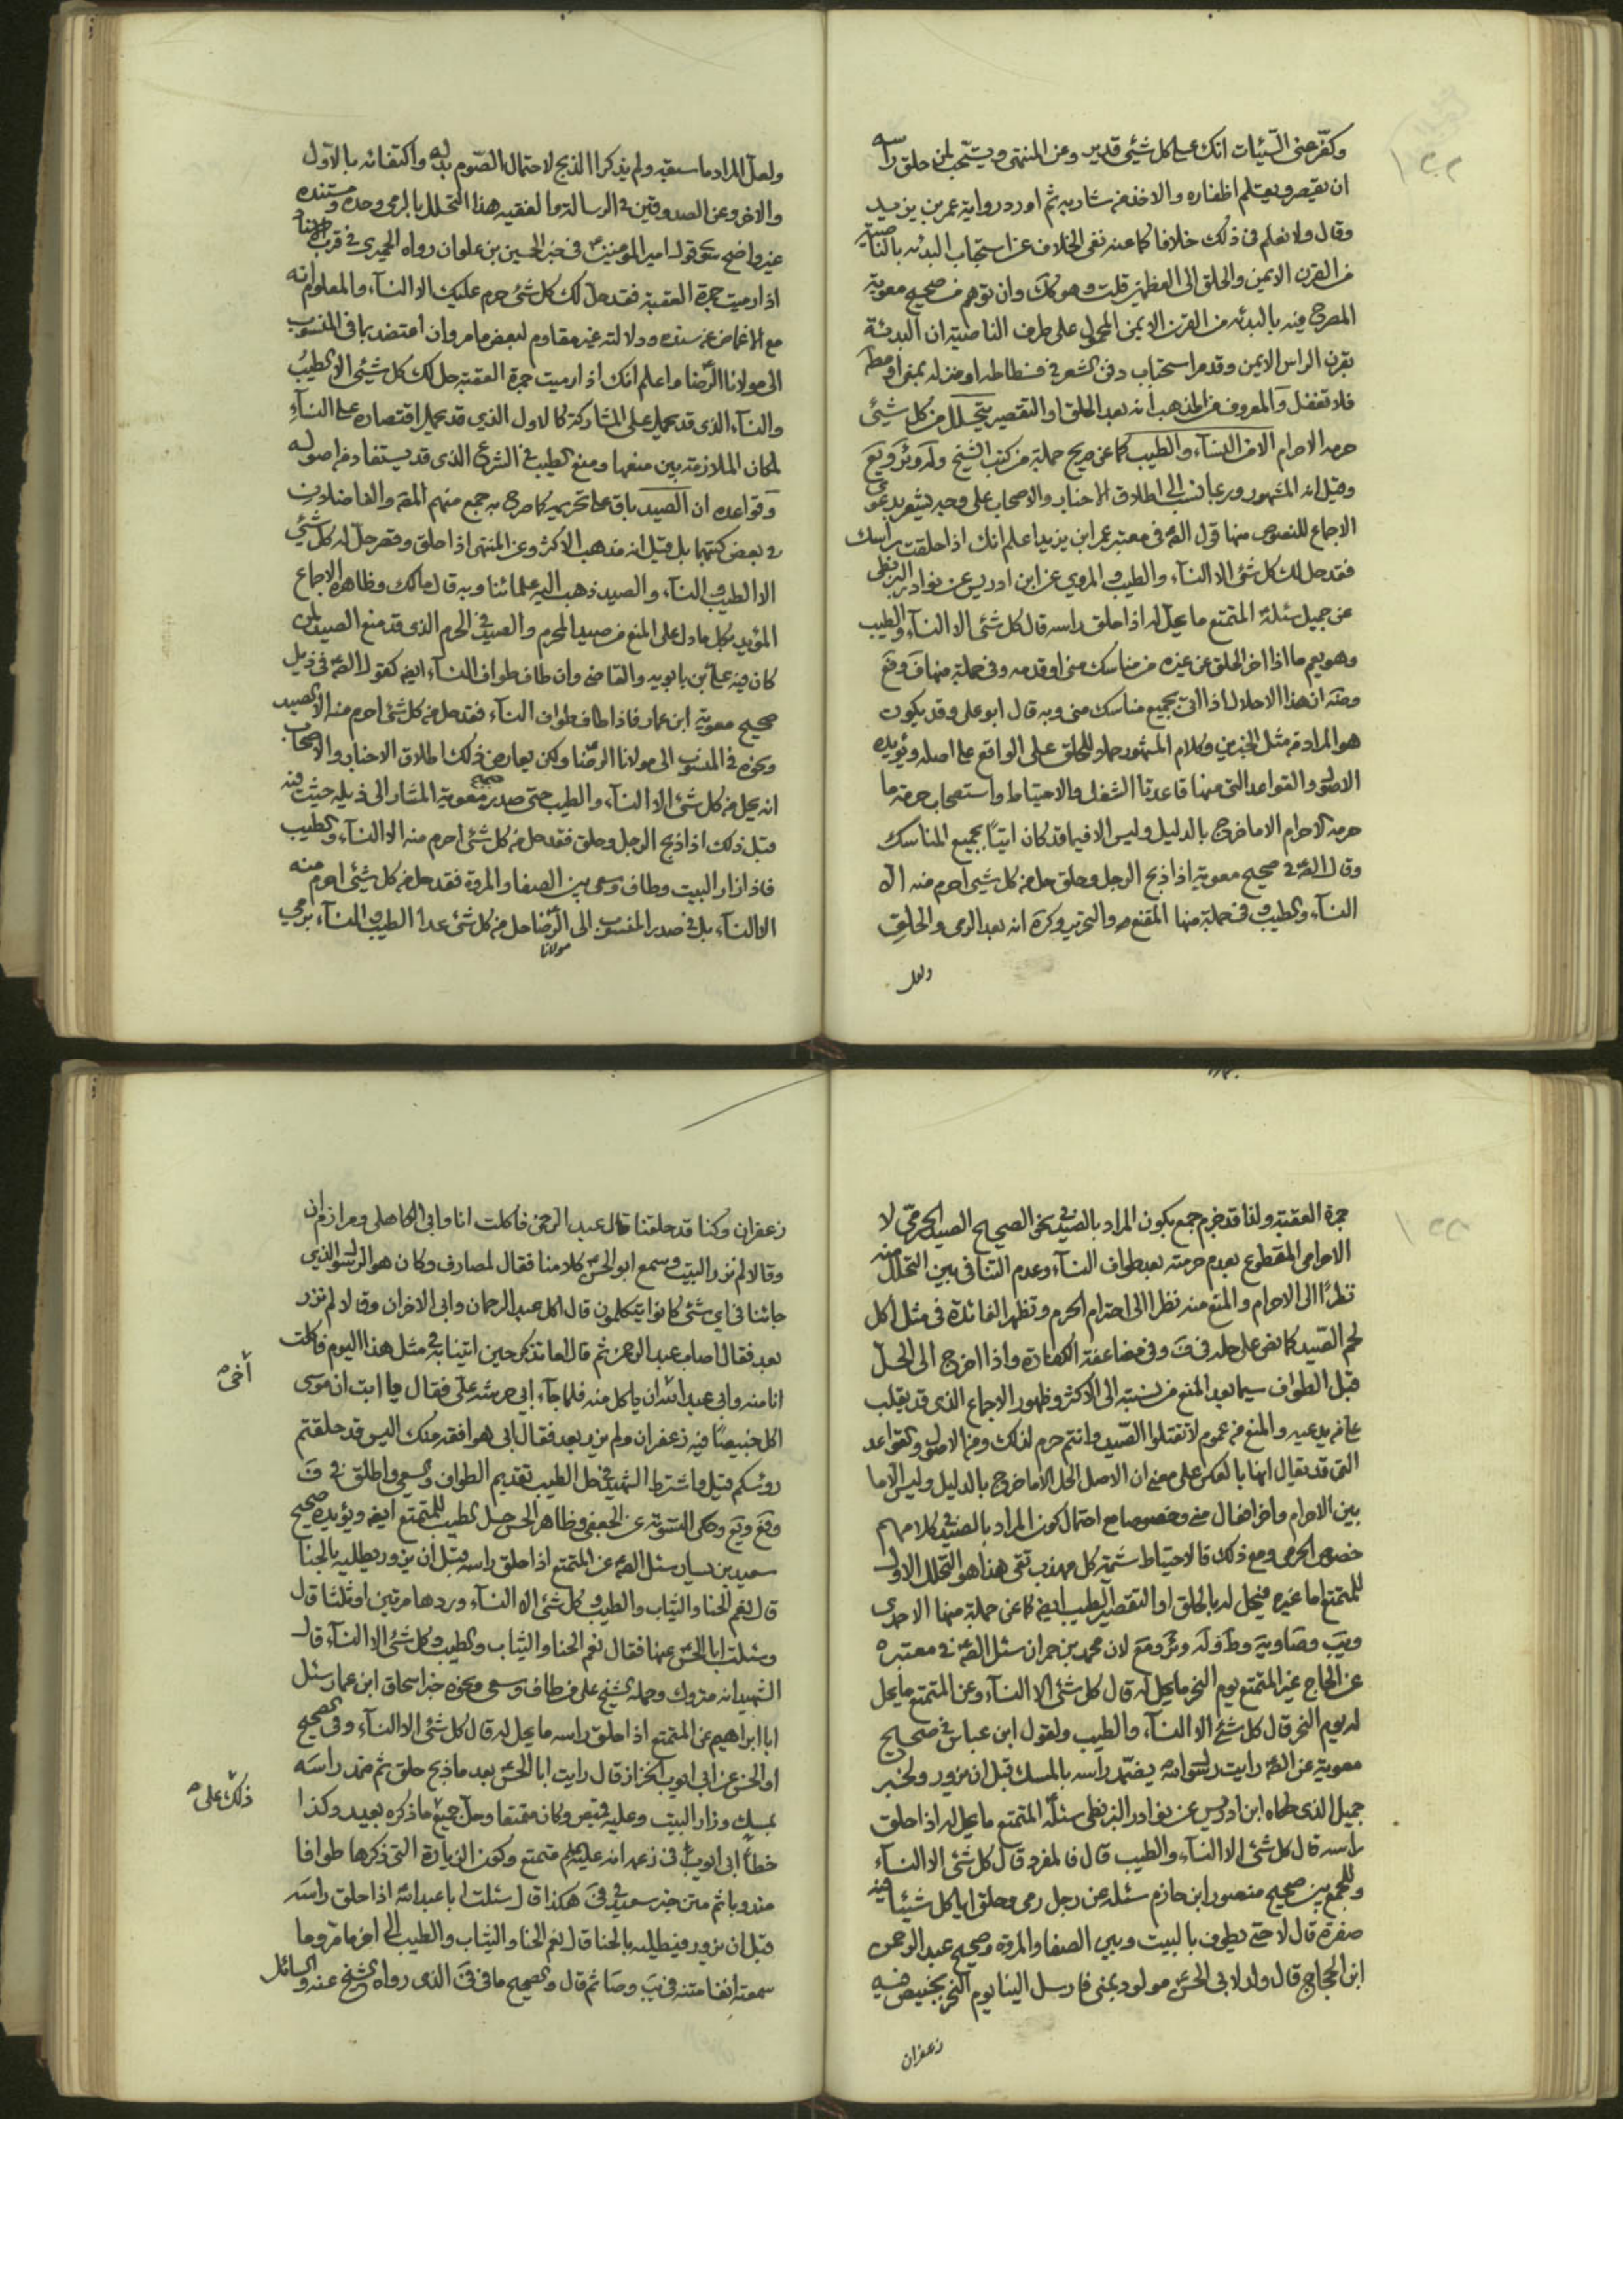 وكفّر عنى السّيئات انك على كل شيئ قدير وعن المنتهى ويستحب لمن حلق راسه
ان يقصر ويقلم اظفاره والاخذ من شاربه ثم اورد رواية عمر بن يزيد
وقال ولا نعلم فى ذلك خلافا كما عنه نفى الخلاف عن استحباب البدئه بالناصية
من القرن الايمن والحلق الى العظمين قلت وهو كك وان توهم من صحيح معوية
المصرح فيه بالبدئه من القرن الايمن المحمول على طرف الناصية ان البدئة
بقرن الراس الايمن وقد مر استحباب دفن الشعر فى فسطاطه او منزله بمنى او مطلقا
فلا تغفل والمعروف من المذهب انه بعد الحلق او التقصير يتحلل من كل شيئ
حرمه الاحرام الا من النساء والطيب كما عن صريح جملة من كتب الشيخ
وقيل انه المشهور وربما نسب الى اطلاق الاخبار والاصحاب على وجه يشعر بدعوى
الاجماع للنصوص منها قول الصه فى معتبر عمر ابن يزيد اعلم انك اذا حلقت راسك
فقد حل لك كل شئ الا النساء والطيب والمروي عن ابن ادريس عن نوادر البزنطى
عن جميل سئلة المتمتع ما يحل له اذا حلق راسه قال كل شئ الا النساء والطيب
وهو يعم ما اذا اخر الحلق عن غيره من مناسك منى او قدمه وفى جملة منها
ان هذا الاحلال اذا اتى بجميع مناسك منى وبه قال ابو على وقد يكون
هو المراد من مثل الخبرين وكلام المشهور حملا للحلق على الواقع على اصله ويؤيده
الاصول والقواعد التى منها قاعدتا الشغل والاحتياط واستصحاب حرمة ما
حرمه الاحرام الا ما خرج بالدليل وليس الا فيما قد كان اتيًا بجميع المناسك
وقال الصه فى صحيح معوية اذا ذبح الرجل وحلق حل من كل شيئ احرم منه الا
النساء والطيب وفى جملة منها المقنع والتحرير وكره انه بعد الرمى والحلق
ولعل
ولعل المراد ما سبقه ولم يذكرا الذبح لاحتمال الصوم بدله واكتفائه بالاول
والاخر وعن الصدوقين فى الرسالة والفقيه هذا التحلل بالرمى وحده ومستنده
غير واضح سوى قول امير المؤمنين فى خبر الحسين بن علوان رواه الحميرى فى قرب الاسناد
اذا رميت جمرة العقبة فقد حل لك كل شئ حرم عليك الا النساء والمعلوم انه
مع الاغماض عن سنده ودلالته غير مقاوم لبعض ما مر وان اعتضد بما فى المنسوب
الى مولانا الرضا واعلم انك اذا رميت جمرة العقبة حل لك كل شيئ الا الطيب
والنساء الذى قد يحمل على المشاركة كالاول الذي قد يحمل اقتصاره على النساء
لمكان الملازمة بين منعها ومنع الطيب فى الشرع الذى قد يستفاد من اصوله
وقواعده ان الصيد باق على تحريمه كما صرح به جمع منهم المصه والفاضلان
فى بعض كتبهما بل قيل انه مذهب الاكثر وعن المنتهى اذا حلق وقصر حل له كل شيئ
الا الطيب والنساء والصيد ذهب اليه علمائنا وبه قال مالك وظاهره الاجماع
المؤيد بكل ما دل على المنع من صيد المحرم والصيد فى الحرم الذى قد منع الصيد لمن
كان فيه على بن بابويه والقاضى وان طاف طواف النساء ايضه كقول الصه فى ذيل
صحيح معوية ابن عمار فاذا طاف طواف النساء فقد حل من كل شئ احرم منه الا الصيد
ونحوه فى المنسوب الى مولانا الرضا ولكن يعارض ذلك اطلاق الاخبار والاصحاب
انه يحل من كل شئ الا النساء والطيب حتى صدر صحيح معوية المشار الى ذيله حيث فيه
قبل ذلك اذا ذبح الرجل وحلق فقد حل من كل شئ احرم منه الا النساء والطيب
فاذا زار البيت وطاف وسعى بين الصفا والمروة فقد حل من كل شيئ احرم منه
الا النساء بل فى صدر المنسوب الى مولانا الرضا حل من كل شئ عدا الطيب والنساء برمي
جمرة العقبة ولذا قد جزم جمع بكون المراد بالصيد فى نحو الصحيح الصيد الحرمى لا
الاحرامى المقطوع بعدم حرمته بعد طواف النساء وعدم التنافى بين التحلل منه
نظرًا الى الاحرام والمنع منه نظرا الى احترام الحرم وتظهر الفائدة فى مثل اكل
لحم الصّيد كما نص على حله فى ف وفى مضاعفة الكفارة واذا اخرج الى الحل
قبل الطواف سيما بعد المنع من نسبته الى الاكثر وظهور الاجماع الذى قد يقلب
على مدعيه والمنع من عموم لا تقتلوا الصّيد وانتم حرم لذلك ومن الاصول والقواعد
التى قد يقال انها بالعكس على معنى ان الاصل الحل الا ما خرج بالدليل وليس الا ما
بين الاحرام واخر افعال منى وخصوصا مع احتمال كون المراد بالصيد فى كلامهم
خصوص الحرمى ومع ذلك فالاحتياط شيمة كل مهذب تقى هذا هو التحلل الاول
للمتمتع اما غيره فيحل له بالحلق او التقصير الطيب ايضه كما عن جملة منها الاحمدى
لان محمد بن حمران سئل الصه فى معتبره
عن الحاج غير المتمتع يوم النحر ما يحل له قال كل شئ الا النساء وعن المتمتع ما يحل
له يوم النحر قال كل شئ الا النساء والطيب ولقول ابن عباس فى صحيح
معوية عن الصه رايت رسول الله يضمّد راسه بالمسك قبل ان يزور ولخبر
جميل الذى حكاه ابن ادريس عن نوادر البزنطى سئله المتمتع ما يحل له اذا حلق
راسه قال كل شئ الا النساء والطيب قال فالمفرد قال كل شئ الا النساء
وللجمع بين صحيح منصور ابن حازم سئله عن رجل رمى وحلق اياكل شيئا فيه
صفرة قال لا حتى يطوف بالبيت وبين الصفا والمروة وصحيح عبد الرحمن
ابن الحجاج قال ولد لابى الحسن مولود بمنى فارسل الينا يوم النحر بخبيص فيه
زعفران
زعفران وكنا قد حلقنا قال عبد الرحمن فاكلت انا وابى الكاهلى ومرازم ان
وقالا لم نزر البيت وسمع ابو الحسن كلامنا فقال لمصارف وكان هو الرسول الذي
جائنا فى اي شئ كانوا يتكلمون قال اكل عبد الرحمان وابى الاخران وقالا لم نزر
بعد فقال اصاب عبد الرحمن ثم قال اما تذكر حين اتينا به فى مثل هذا اليوم فاكلت
انا منه وابى عبد الله ان ياكل منه فلما جاء ابى حرشه على فقال يا ابت ان موسى
اكل خبيصًا فيه زعفران ولم يزر بعد فقال ابى هو افقه منك اليس قد حلقتم
رؤسكم قيل واشترط الشهيد فى حل الطيب تقديم الطواف والسعى واطلق فى ف
وحكى التسوية عن الجعفى وظاهر الحسن حل الطيب للمتمتع ايضه ويؤيده صحيح
سعيد بن يسار سئل الصه عن المتمتع اذا حلق راسه قبل ان يزور يطليه بالحنا
قال نعم الحنا والثياب والطيب وكل شئ الا النساء ورددها مرتين او ثلثا قال
وسئلت ابا الحسن عنها فقال نعم الحنا والثياب والطيب وكل شئ الا النساء قال
الشهيد انه متروك وحمله الشيخ على من طاف وسعى ونحوه خبر اسحاق ابن عمار سئل
ابا ابراهيم عن المتمتع اذا حلق راسه ما يحل له قال كل شئ الا النساء وفى الصحيح
او الحسن عن ابى ايوب الخزاز قال رايت ابا الحسن بعد ما ذبح حلق ثم ضمد راسه
بمسك وزار البيت وعليه قميص وكان متمتعا وحمل جميع ما ذكره بعيد وكذا
خطأ ابى ايوب فى زعمه انه عليه السلم متمتع وكون الزيارة التى ذكرها طوافا
مندوبا ثم متن خبر سعيد فى فى هكذا قال سئلت ابا عبد الله اذا حلق راسه
قبل ان يزور فيطليه بالحنا قال نعم الحنا والثياب والطيب الى اخر ما مر وما
سمعته انفا متنه فى يب وصا ثم قال والصحيح ما فى فى الذى رواه الشيخ عنه والسائل
أخى
ذلك على